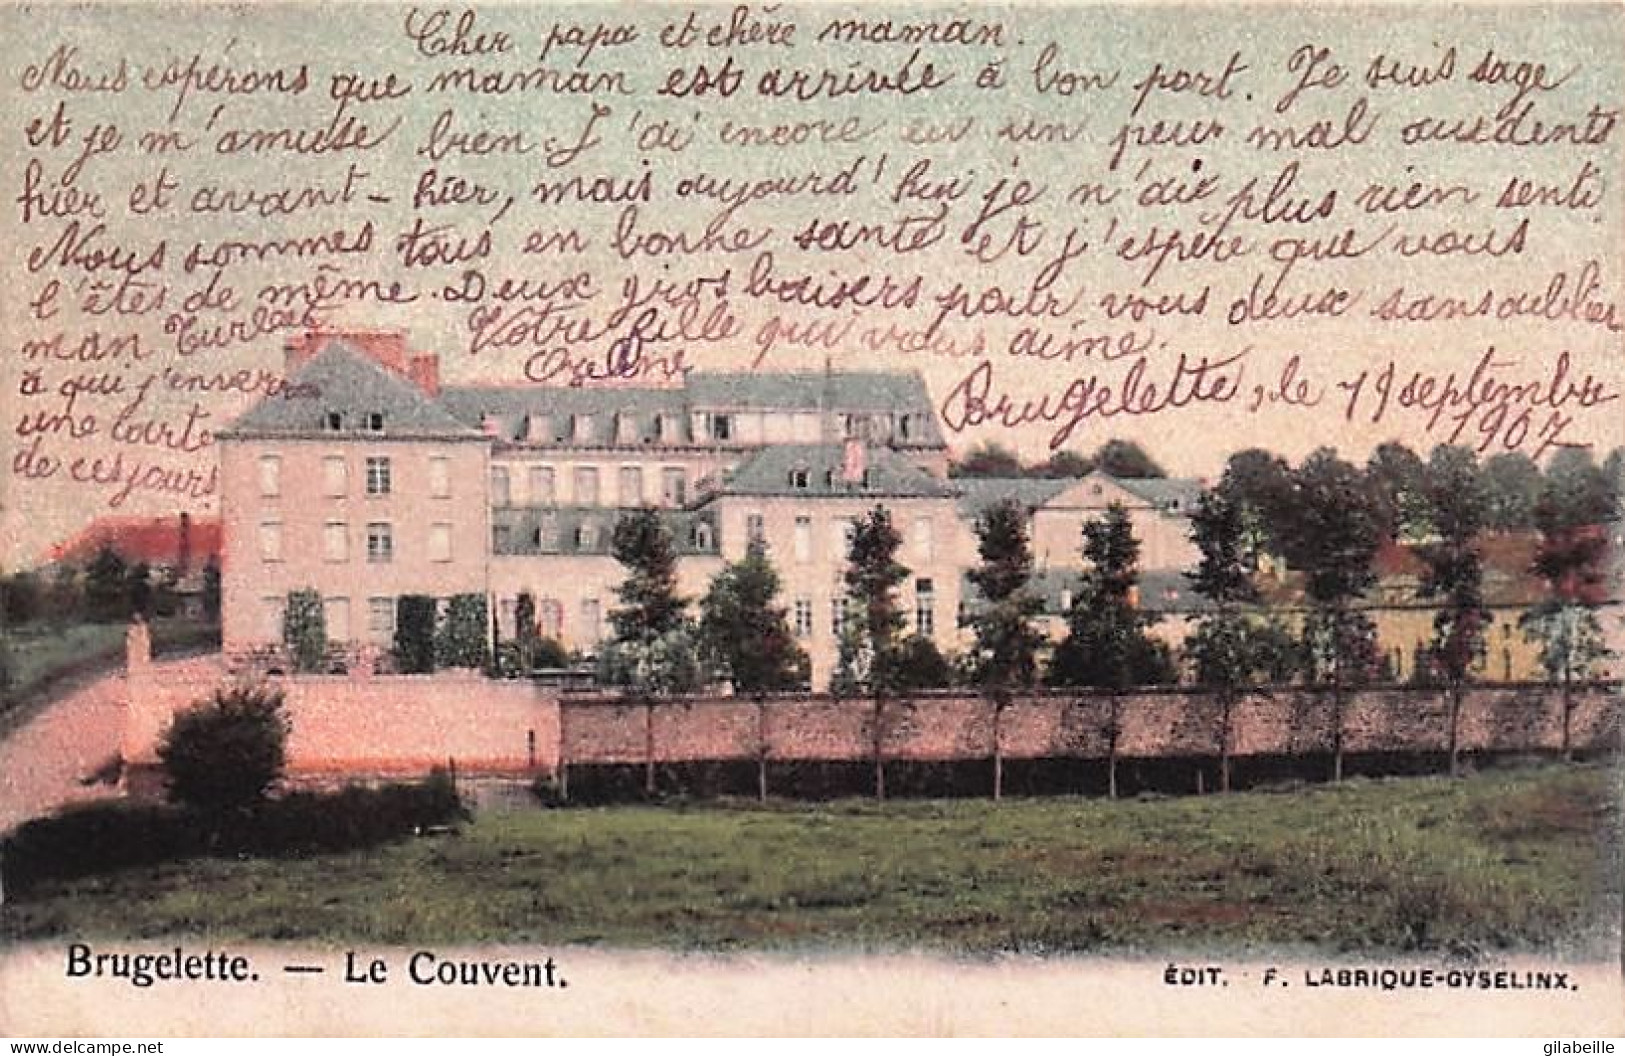 Cher papa et chère maman.
Nous espérons que maman est arrivée à bon port. Je suis sage
et je m'amuse bien. J'ai encore eu un peu mal aux dents
hier et avant-hier, mais aujourd'hui je n'ai plus rien senti.
Nous sommes tous en bonne santé et j'espère que vous
l'êtes de même. Deux gros baisers pour vous deux sans oublier
mon
Votre fille qui vous aime.
à qui j'enverrai
une carte
de ces jours
Brugelette, le 19 septembre
1907
Brugelette. — Le Couvent.
ÉDIT. F. LABRIQUE-GYSELINX.
delcampe.net
gilabeille